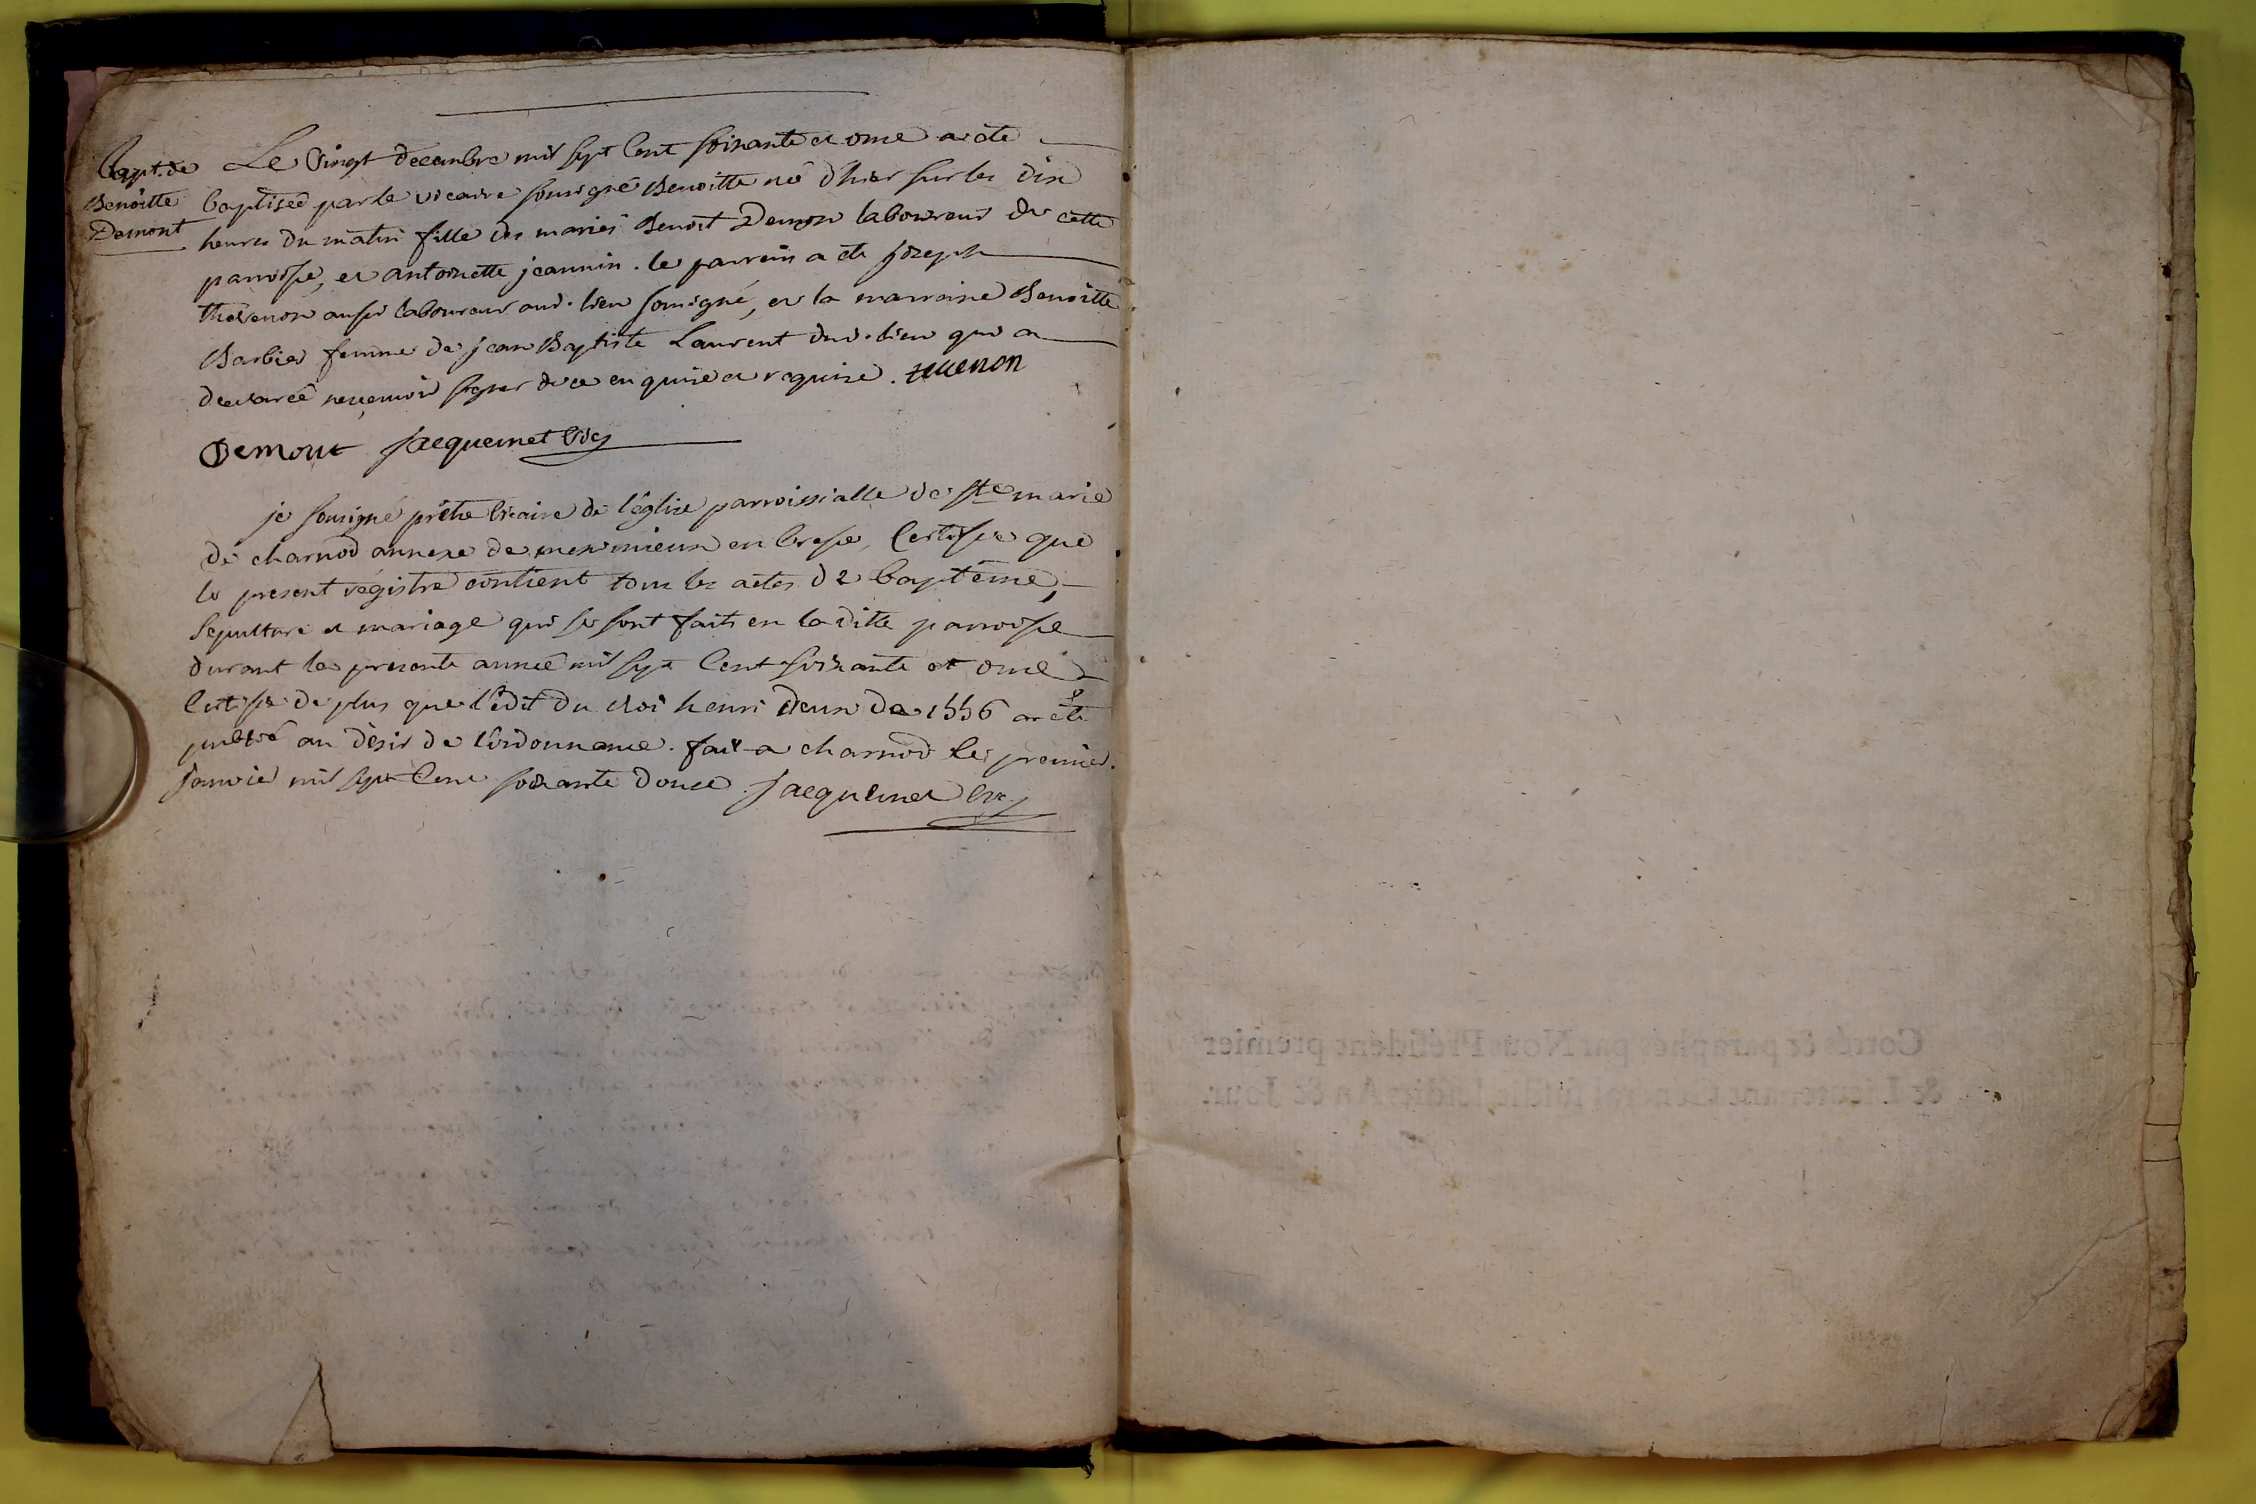 Bapt. de
Benoitte
Demont
Le Vingt decembre mil sept Cent soixante et onze a été
baptiseé par le vicaire sousigné Benoitte né d'hier sur les dix
heures du matin fille des mariés Benoit Demon laboureur de cette
parroisse, et antoinette jeannin. le parrein a ete joseph
thevenon aussi laboureur aud. lieu sousigné, et la marraine Benoitte
Barbier femme de jean Baptiste Laurent dud. lieu qui a
declareé ne sçavoir signer de ce enquise et requise. tevenon
Demont Jacquemet Vic
je sousigné prêtre vicaire de l'église parroissialle de Ste marie
de charnod annexe de meximieux en bresse, Certifie que
le present régistre contient tous les actes de baptême,
sepulture et mariage qui se sont faits en la ditte parroisse
durant la presente anneé mil sept Cent soixante et onze
Certifie de plus que l'édit du Roi henri deux de 1556 a été
publié au désir de l'ordonnance. fait a charnod le premier
janvié mil sept Cent soixante douze. Jacquemet vic
Cottés & paraphés par Nous Président premier
& Lieutenant Général susdit, lesdits An & Jour.